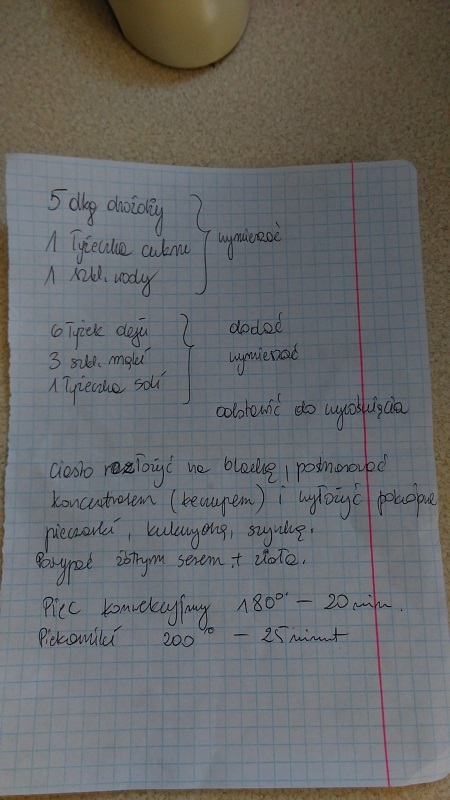 5 dkg drożdży
1 łyżeczka cukru wymieszać
1 szkl. wody
6 łyżek oleju dodać
3 szkl. mąki wymieszać
1 łyżeczka soli
odstawić do wyrośnięcia
Ciasto rozłożyć na blachę, posmarować
koncentratem (keczupem) i wyłożyć pokrojone
pieczarki, kukurydzę, szynkę.
Posypać żółtym serem + zioła.
Piec konwekcyjny 180° – 20 min.
Piekarnik 200° – 25 minut